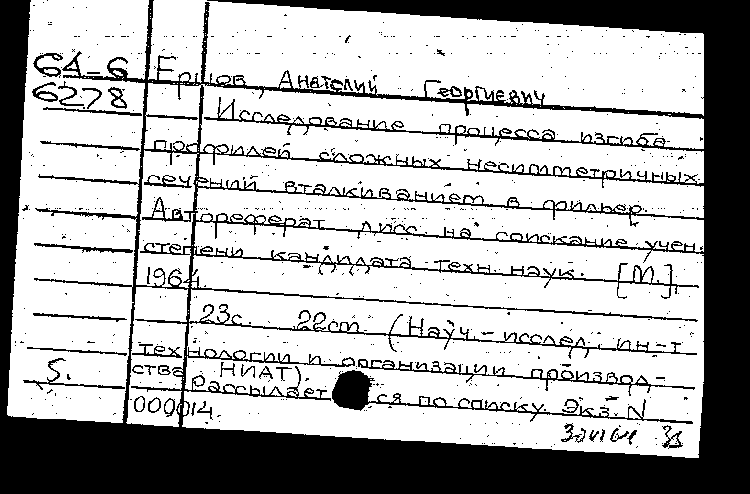 64-6 Ершов, Анатолий Георгиевич
6278 Исследование процесса изгиба
профилей сложных несимметричных
сечений вталкиванием в фильер.
Автореферат дисс. на соискание учен.
степени кандидата техн. наук. [М.],
1964
23с. 22см (Науч.-исслед. ин-т
технологии и организации производ-
5. ства НИАТ).
Рассылается по списку. Экз. N
000014.